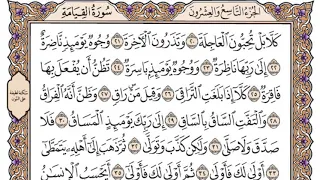 الجزء التاسع والعشرون
سورة القيامة
كَلَّا بَلْ تُحِبُّونَ الْعَاجِلَةَ ٢٠ وَتَذَرُونَ الْآخِرَةَ ٢١ وُجُوهٌ يَوْمَئِذٍ نَّاضِرَةٌ
٢٢ إِلَىٰ رَبِّهَا نَاظِرَةٌ ٢٣ وَوُجُوهٌ يَوْمَئِذٍ بَاسِرَةٌ ٢٤ تَظُنُّ أَن يُفْعَلَ بِهَا
فَاقِرَةٌ ٢٥ كَلَّا إِذَا بَلَغَتِ التَّرَاقِيَ ٢٦ وَقِيلَ مَنْ رَاقٍ ٢٧ وَظَنَّ أَنَّهُ الْفِرَاقُ
٢٨ وَالْتَفَّتِ السَّاقُ بِالسَّاقِ ٢٩ إِلَىٰ رَبِّكَ يَوْمَئِذٍ الْمَسَاقُ ٣٠ فَلَا
صَدَّقَ وَلَا صَلَّىٰ ٣١ وَلَٰكِن كَذَّبَ وَتَوَلَّىٰ ٣٢ ثُمَّ ذَهَبَ إِلَىٰ أَهْلِهِ يَتَمَطَّىٰ
٣٣ أَوْلَىٰ لَكَ فَأَوْلَىٰ ٣٤ ثُمَّ أَوْلَىٰ لَكَ فَأَوْلَىٰ ٣٥ أَيَحْسَبُ الْإِنسَانُ